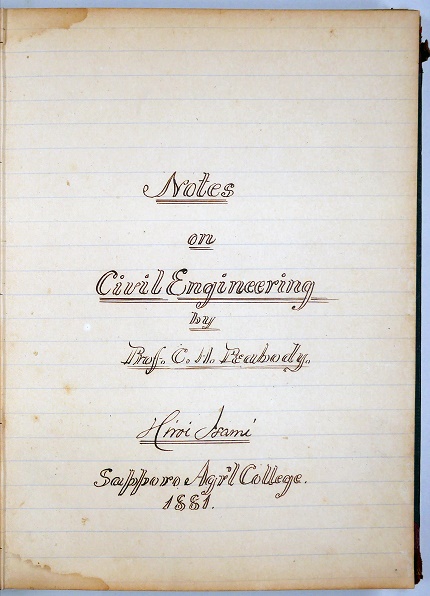 Notes
on
Civil Engineering
by
Prof. C. H. Peabody.
Hiroi Isami
Sapporo Agr'l College.
1881.